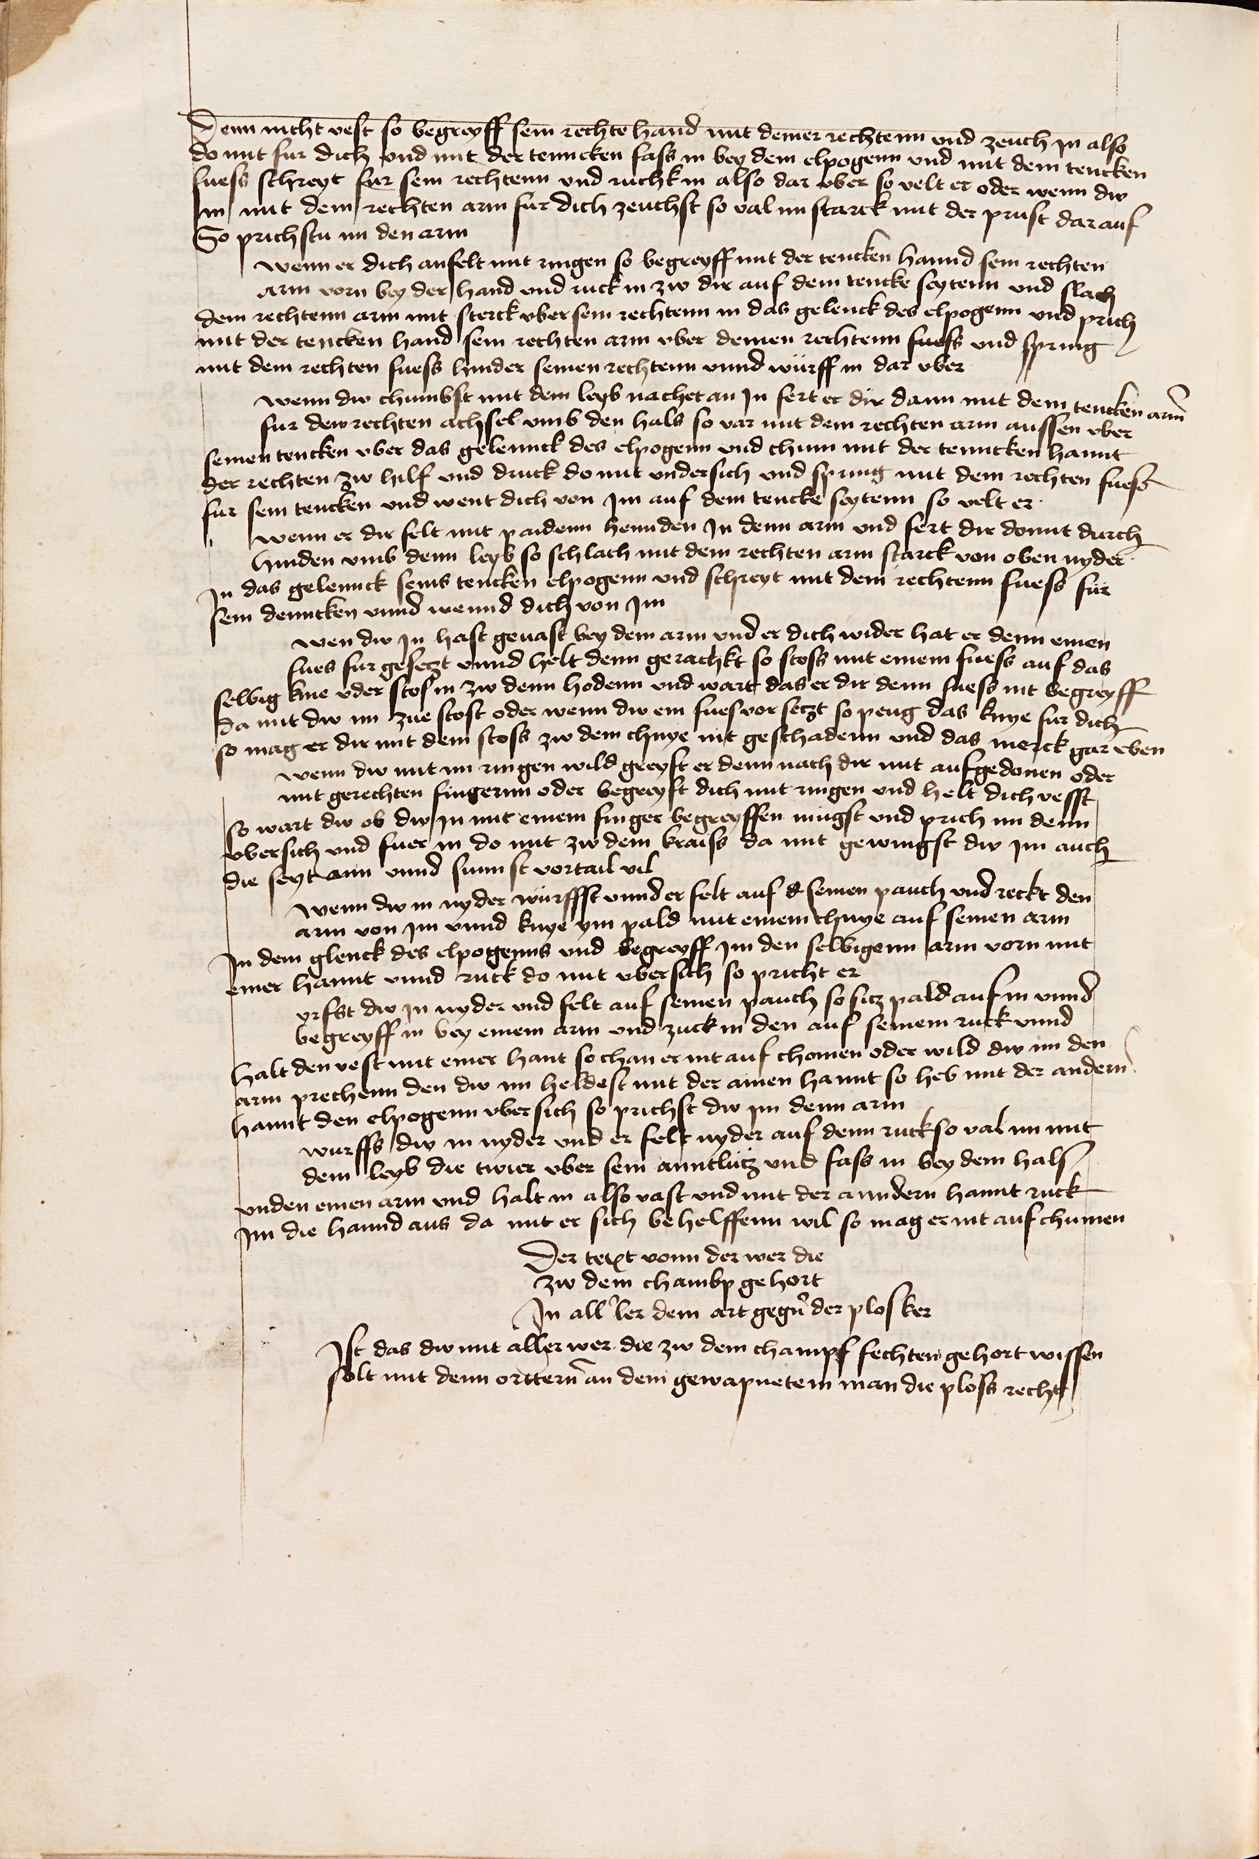 Denn nicht vest so begreyff sein rechte hand mit deiner rechtenn vnd zeuch in also
do mit fur dich vnd mit der tenncken fass in bey dem elpogenn vnd mit dem tencken
fuess schreyt fur sein rechtenn vnd ruchk in also dar vber so velt er oder wenn dw
in mit dem rechten arm fur dich zeuchst so val im starck mit der prust dar auf
So prichstu im den arm
wenn er dich anfelt mit ringen so begreyff mit der tencken hannd sein rechten
arm vorn bey der hand vnd ruck in zw dir auf dem tencke seytenn vnd slach
dein rechtenn arm mit sterck vber sein rechtenn in das gelenck des elpogenn vnd prich
mit der tencken hand sein rechten arm vber deinen rechtenn fuess vnd spring
mit dem rechten fuess hinder seinen rechtenn vnnd würff in dar vber
wenn dw chumbst mit dem leyb nachet an in fert er dir dann mit dem tencken arm
fur dein rechten achsel vmb den hals so var mit dem rechten arm aussen vber
seinen tencken vber das gelennck des elpogenn vnd chum mit der tenncken hannt
der rechten zw hilf vnd druck do mit vndersich vnd spring mit dem rechten fuess
fur sein tencken vnd went dich von im auf dem tencke seytenn so velt er
wenn er dir felt mit paidenn hennden in denn arm vnd fert dir domit durch
hinden vmb denn leyb so schlach mit dem rechten arm starck von oben nyder
In das gelennck seins tencken elpogenn vnd schreyt mit dem rechtenn fuess für
sein denncken vnnd wennd dich von im
wen dw in hast geuast bey dem arm vnd er dich wider hat er denn einen
fues fur gesetzt vnnd helt denn gerachkt so stoss mit einem fuess auf das
selbig knie oder stos in zw denn hodenn vnd wart das er dir denn fuess nit begreyff
da mit dw im zue stost oder wenn dw ein fues vor setzt so peug das knye fur dich
so mag er dir mit dem stoss zw dem chnye nit geschadenn vnd das merck gar eben
wenn dw mit im ringen wild greyft er denn nach dir mit aufgedonen oder
mit gerechten fingernn oder begreyft dich mit ringen vnd helt dich vesst
so wart dw ob dw in mit einem finger begreyffen mugst vnd prich im denn
vbersich vnd fuer in do mit zw dem kraiss da mit gewingst dw im auch
die seyt ann vnnd sunnst vortail vil
wenn dw in nyder würffst vnnd er felt auf seinen pauch vnd reckt den
arm von im vnnd knye ym pald mit einem chnye auf seinen arm
In dem glenck des elpogenns vnd begreyff im den selbigenn arm vorn mit
einer hannt vnnd ruck do mit vbersich so pricht er
vrfst dw in nyder vnd felt auf seinen pauch so sitz pald auf in vnnd
begreyff in bey einem arm vnd zuck in den auf seinem ruck vnnd
halt den vest mit einer hant so chan er nit auf chomen oder wild dw im den
arm prechenn den dw im heldest mit der ainen hannt so heb mit der andern
hannt den elpogenn vbersich so prichst dw im denn arm
wurffs dw in nyder vnd er felt nyder auf denn ruck so val im mit
dem leyb die twier vber sein anntlutz vnd fass in bey dem hals
vnden einen arm vnd halt in also vast vnd mit der anndern hannt ruck
Im die hannd aus da mit er sich behelffenn wil so mag er nit auf chumen
Der text vonn der wer die
zw dem chambp gehort
In all ler dem art gegn der plosker
Ist das dw mit aller wer die zw dem champf fechten gehort wissen
solt mit denn orttern an dem gewapnetem man die ploss recht